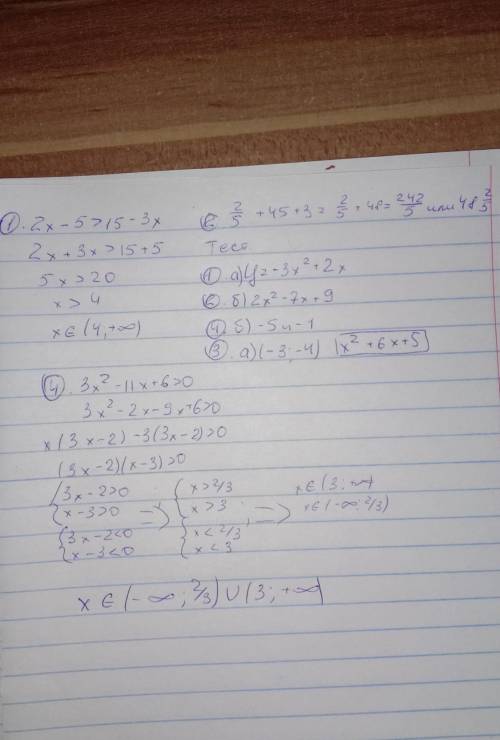 ①. 2x - 5 > 15 - 3x
2x + 3x > 15 + 5
5x > 20
x > 4
x ∈ (4; +∞)
2/5 + 45 + 3 = 2/5 + 48 = 242/5 или 48 2/5
Тест
①. а) y = -3x² + 2x
⑥. б) 2x² - 7x + 9
④. б) -5 и -1
③. а) (-3; -4) x² + 6x + 5
④. 3x² - 11x + 6 > 0
3x² - 2x - 9x + 6 > 0
x(3x - 2) - 3(3x - 2) > 0
(3x - 2)(x - 3) > 0
{ 3x - 2 > 0 { x > 2/3 x ∈ (3; +∞)
{ x - 3 > 0 => { x > 3 ; => x ∈ (-∞; 2/3)
{ 3x - 2 < 0 { x < 2/3
{ x - 3 < 0 { x < 3
x ∈ (-∞; 2/3) ∪ (3; +∞)